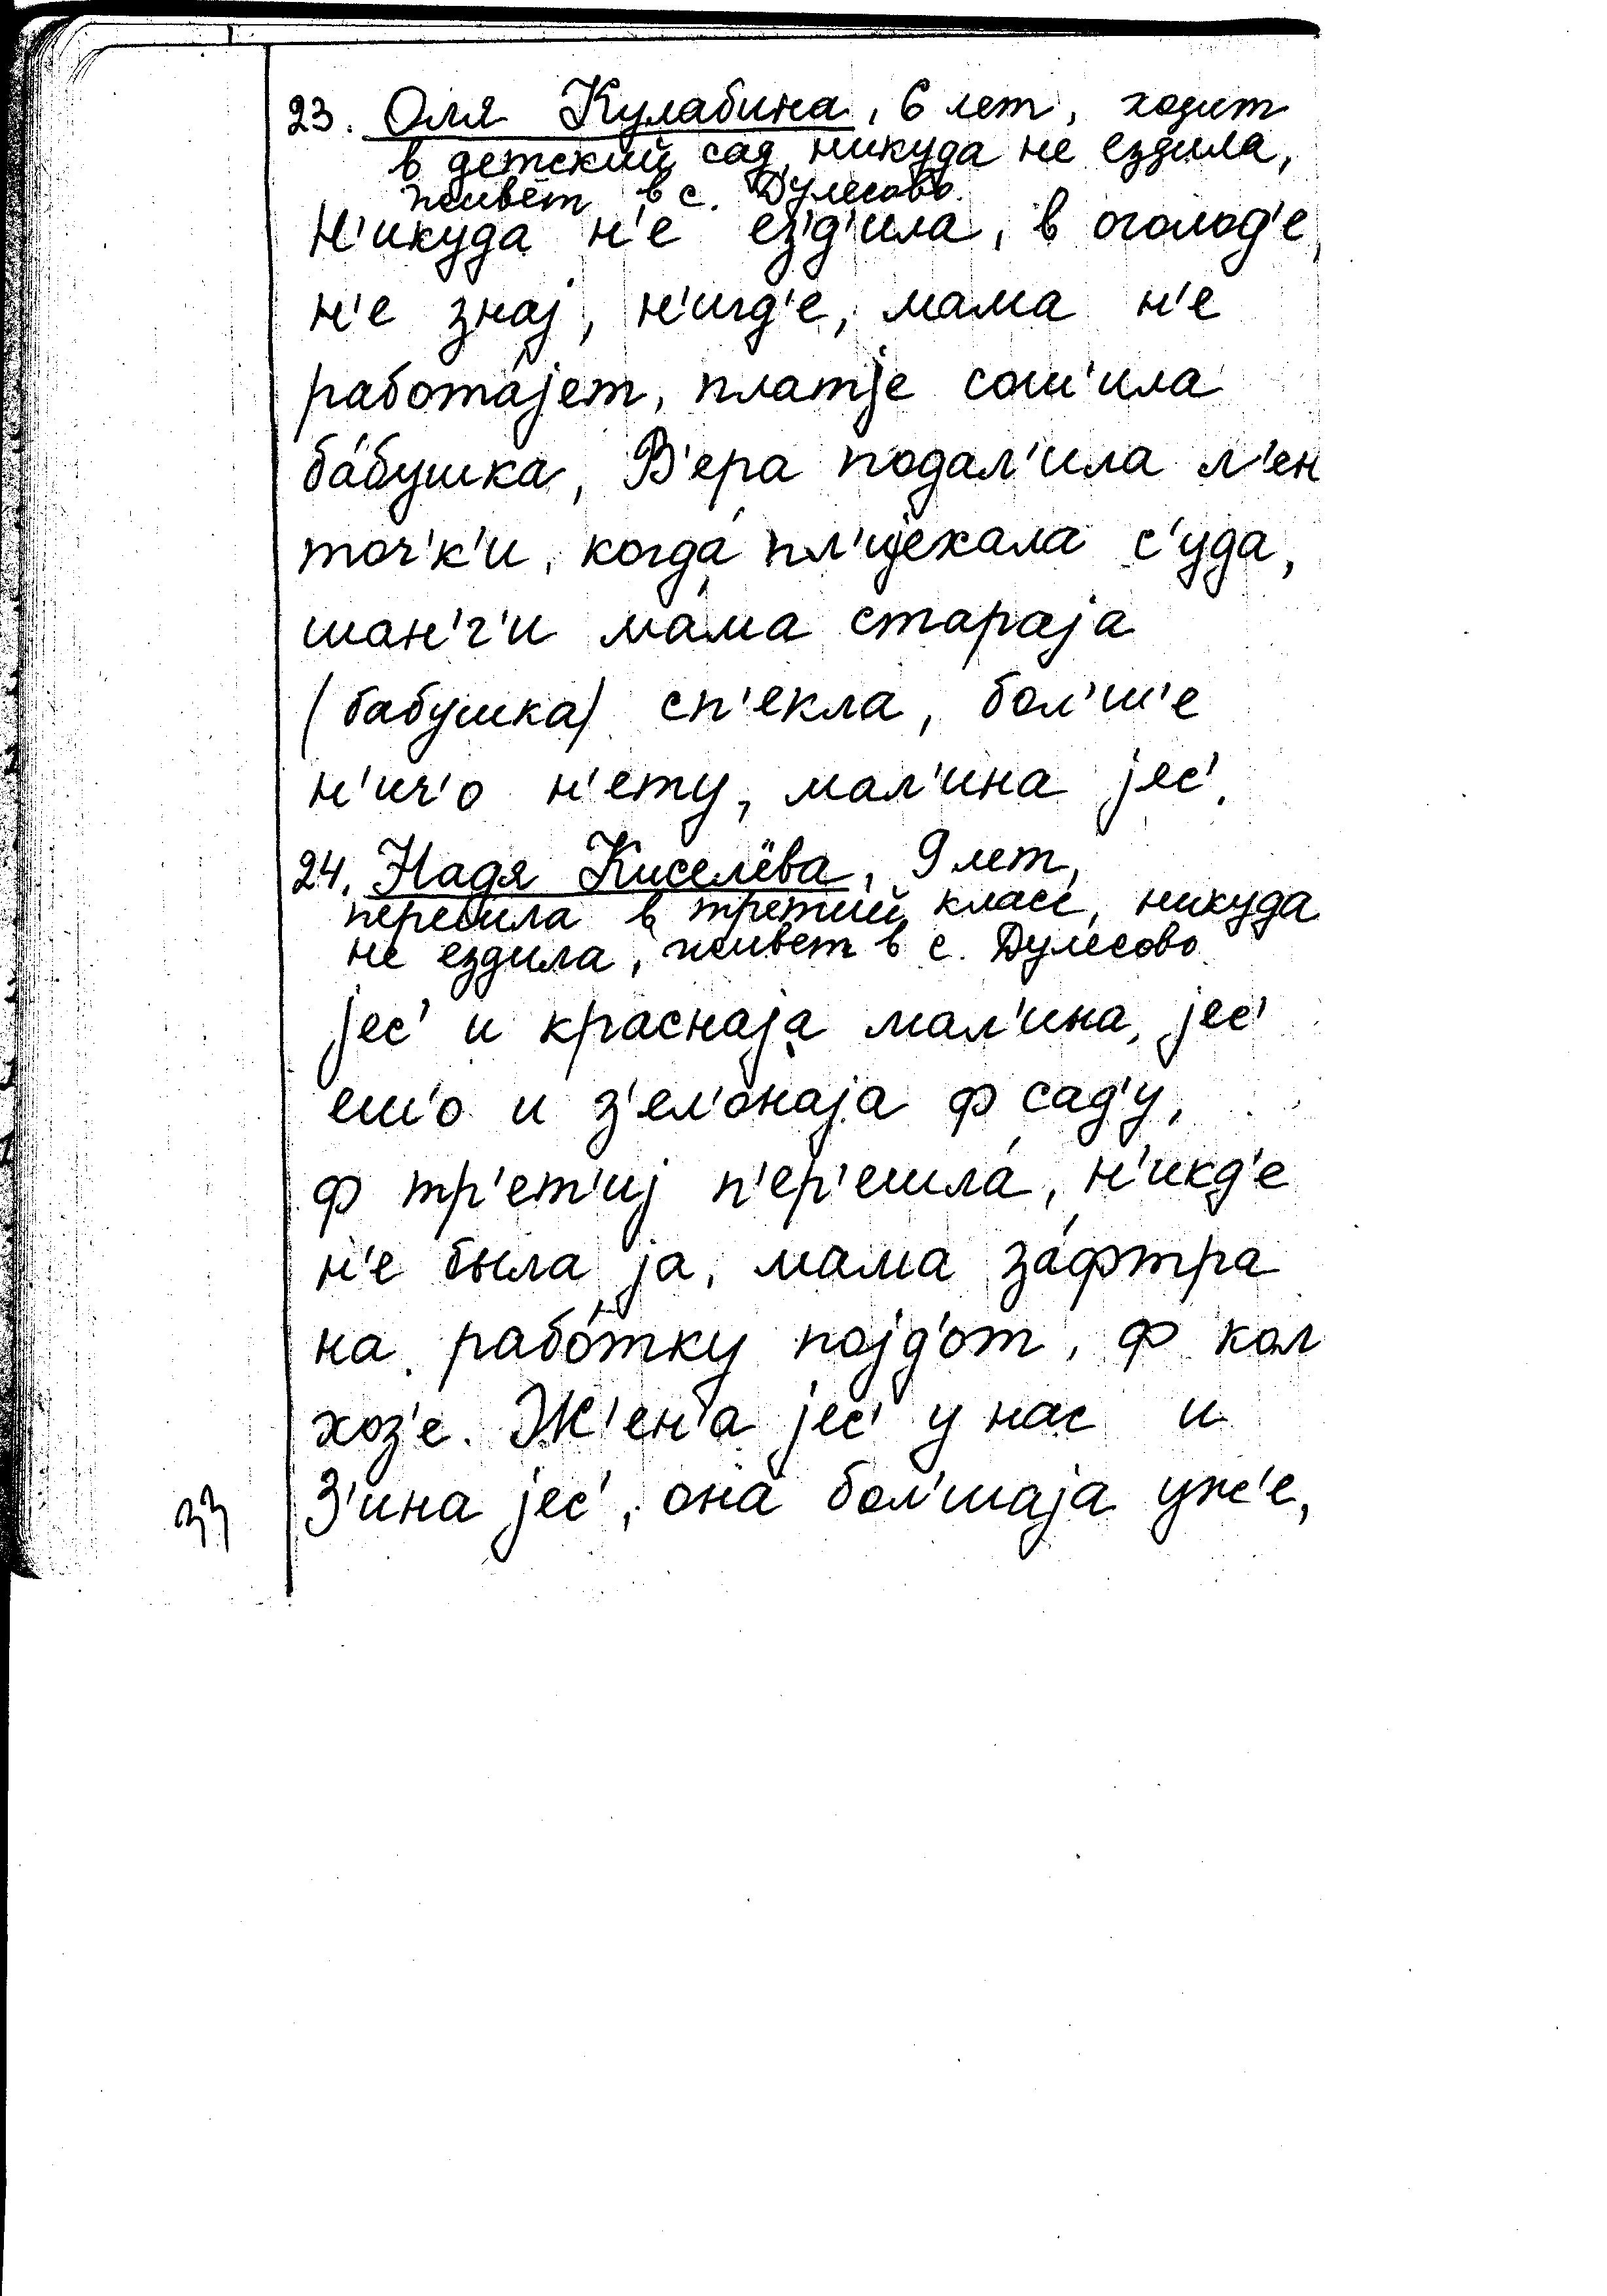 23. Оля Кулабина, 6 лет, ходит
в детский сад, никуда не ездила,
живёт в с. Дулесово.
Н'икуда н'е ез'д'ила, в оголод'е,
н'е знај, н'игд'е, мама н'е
работајет, платје сош'ила
ба́бушка, В'ера подал'ила л'ен
точ'к'и, когда́ пл'ијехала с'уда,
шан'г'и мама стараја
(бабушка) сп'екла, бол'ш'е
н'ич'о н'ету, мал'ина јес'.
24. Надя Киселёва, 9 лет,
перешла в третий класс, никуда
не ездила, живёт в с. Дулесово.
јес' и краснаја мал'ина, јес'
еш'о и з'ел'онаја ф сад'у,
ф тр'ет'иј п'ер'ешла́, н'икд'е
н'е была ја, мама за́фтра
на рабо́тку појд'от, ф кол
хоз'е. Ж'ен'а јес' у нас и
З'ина јес', она бол'шаја уж'е,
33